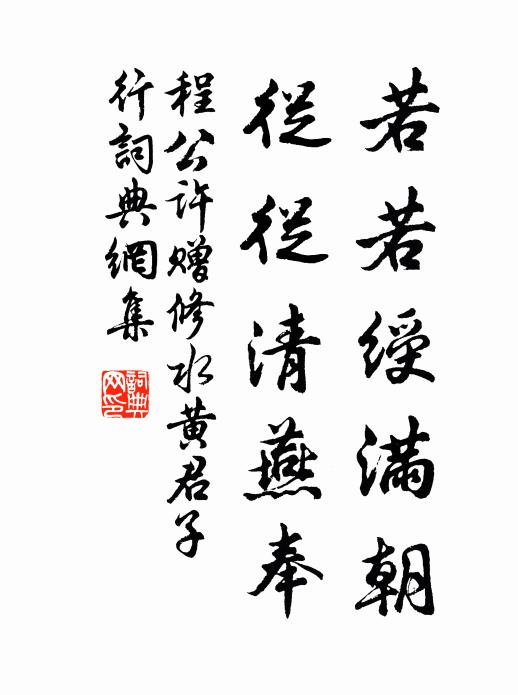 若若綬滿朝
從從清燕奉
程公許贈修水黄君子
行詞典網集
詞典網印